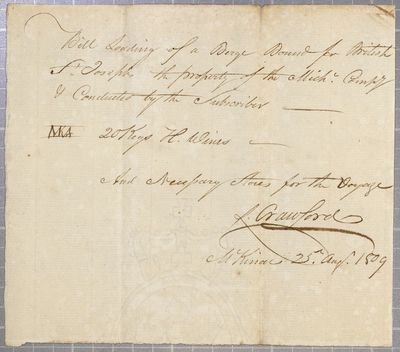 Bill Loading of a Barge Bound for British
St. Joseph the property of the Mich. Compy
& Conducted by the Subscriber
MA 20 Kegs H. Wines
And Necessary Stores for the Voyage
J. Crawford
McKinac 25th Augt. 1809